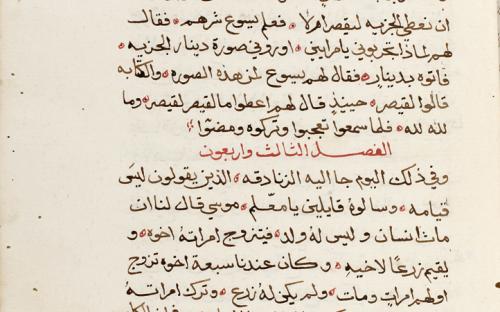 ان نعطى الجزيه لقيصر ام لا * فعلم يسوع شرهم * فقال
لهم لماذا تجربونى يامرايين * اورونى صورة دينار الجزيه *
فاتوه بدينار * فقال لهم يسوع لمن هذه الصوره * والكتابه
قالوا لقيصر * حينيذ قال لهم اعطوا ما لقيصر لقيصر * وما
لله لله * فلما سمعوا تعجبوا وتركوه ومضوا
الفصل الثالث واربعون
وفى ذلك اليوم جا اليه الزنادقه * الذين يقولون ليس
قيامه * وسالوه قايلين يا معلم * موسى قال لنا ان
مات انسان وليس له ولد * فيتزوج امراته اخوه * و
يقيم زرعًا لاخيه * وكان عندنا سبعة اخوه تزوج
اولهم امراة ومات * ولم يكن له زرع * وترك امراته